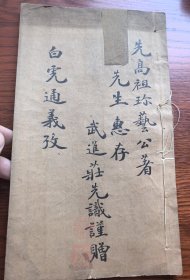 先高祖珍藝公著
先生惠存
武進莊先識謹贈
白虎通義攷